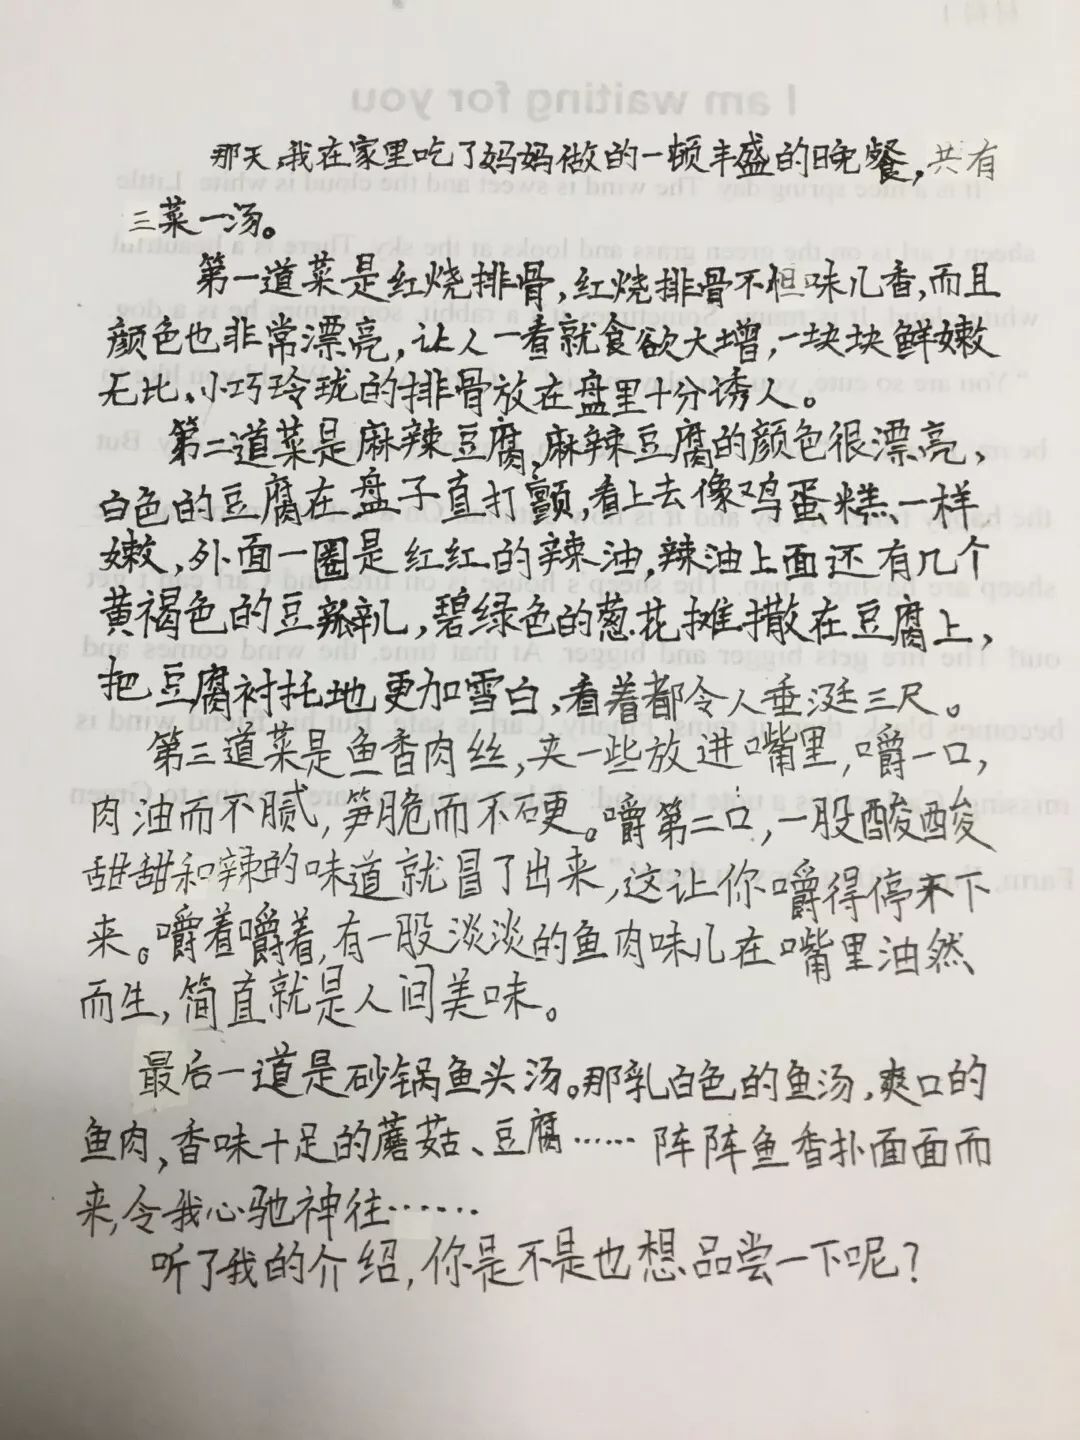 那天,我在家里吃了妈妈做的一顿丰盛的晚餐,共有
三菜一汤。
第一道菜是红烧排骨,红烧排骨不但味儿香,而且
颜色也非常漂亮,让人一看就食欲大增,一块块鲜嫩
无比、小巧玲珑的排骨放在盘里十分诱人。
第二道菜是麻辣豆腐,麻辣豆腐的颜色很漂亮,
白色的豆腐在盘子直打颤,看上去像鸡蛋糕一样
嫩,外面一圈是红红的辣油,辣油上面还有几个
黄褐色的豆瓣儿,碧绿色的葱花摊撒在豆腐上,
把豆腐衬托地更加雪白,看着都令人垂涎三尺。
第三道菜是鱼香肉丝,夹一些放进嘴里,嚼一口,
肉油而不腻,笋脆而不硬。嚼第二口,一股酸酸
甜甜和辣的味道就冒了出来,这让你嚼得停不下
来。嚼着嚼着,有一股淡淡的鱼肉味儿在嘴里油然
而生,简直就是人间美味。
最后一道是砂锅鱼头汤。那乳白色的鱼汤,爽口的
鱼肉,香味十足的蘑菇、豆腐……阵阵鱼香扑面面而
来,令我心驰神往……
听了我的介绍,你是不是也想品尝一下呢?